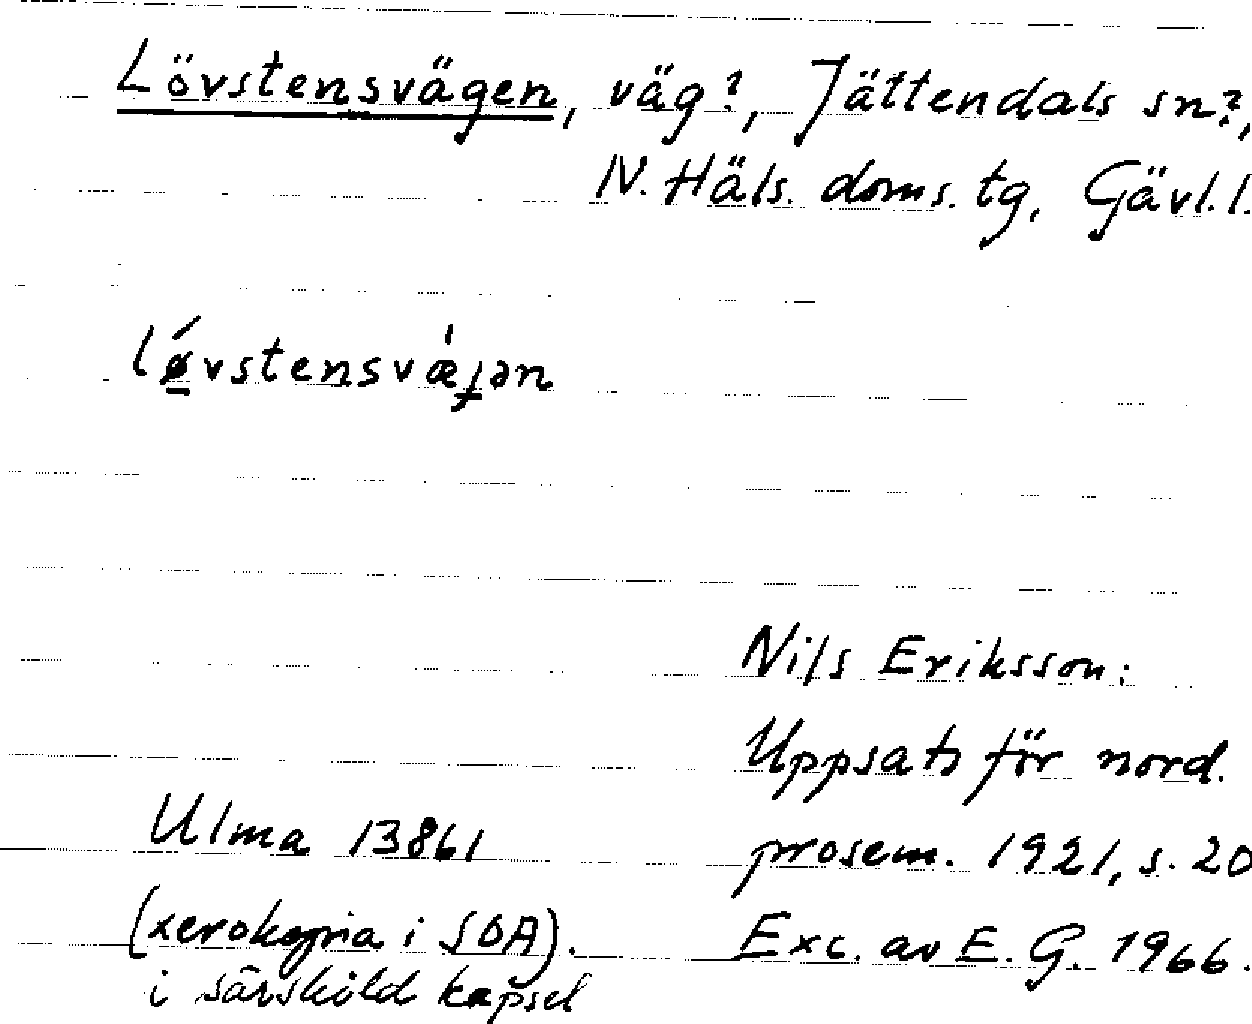 Lövstensvägen, väg?, Jättendals sn?,
N. Häls. doms. tg, Gävl. l.
lǿ̱vstensvæ̍ɟən
Nils Eriksson:
Uppsats för nord.
Ulma 13861 prosem. 1921, s. 20
(xerokopia i SOA). Exc. av E. G. 1966.
i särskild kapsel